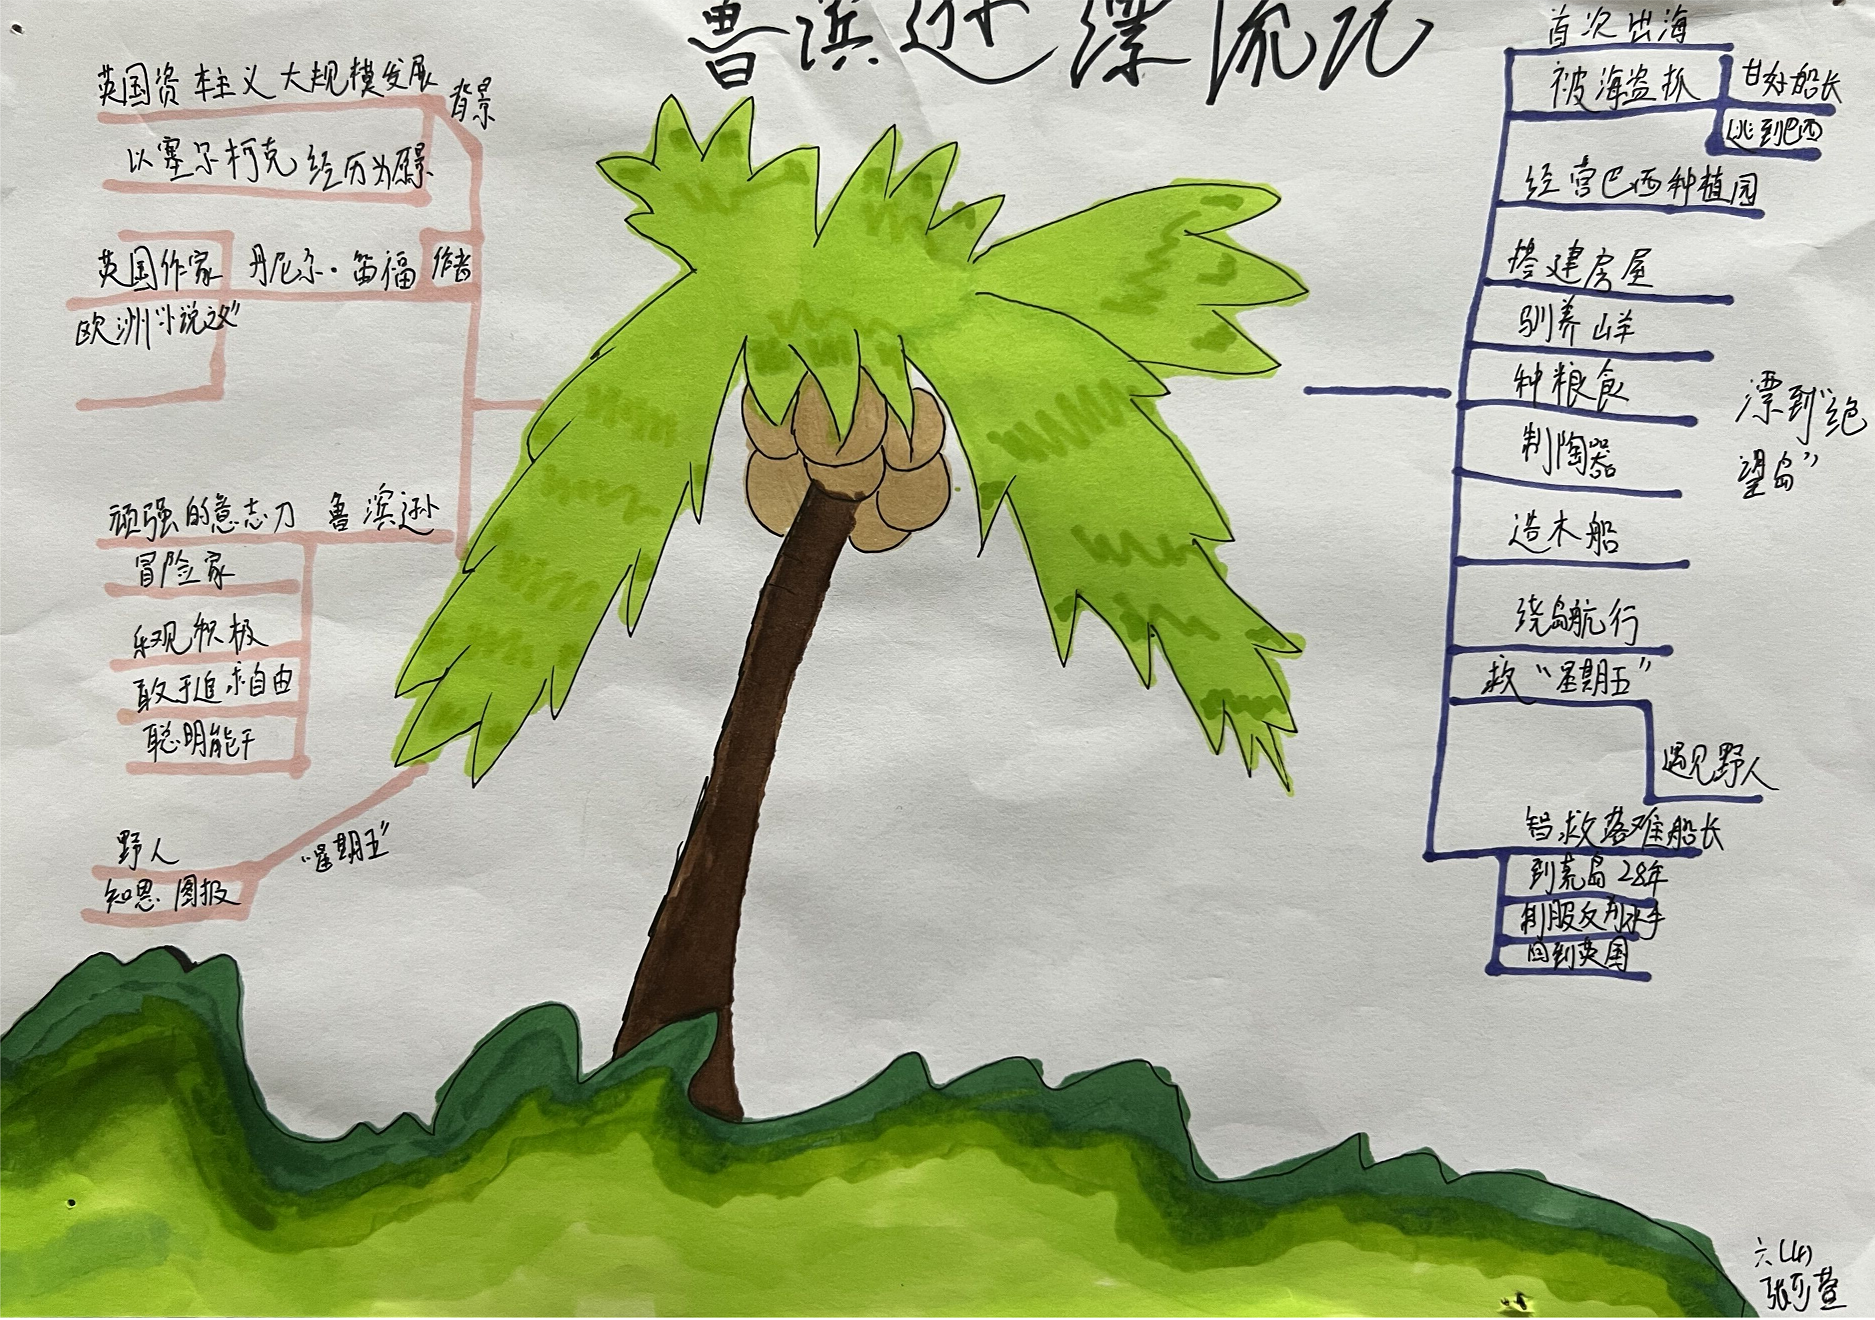 鲁滨逊漂流记
英国资本主义大规模发展
背景
以塞尔柯克经历为原景
英国作家 丹尼尔·笛福 作者
欧洲"小说之父"
顽强的意志力 鲁滨逊
冒险家
乐观积极
敢于追求自由
聪明能干
"星期五"
野人
知恩图报
首次出海
被海盗抓
甘好船长
逃到巴西
经营巴西种植园
搭建房屋
驯养山羊
种粮食
制陶器
造木船
绕岛航行
救"星期五"
遇见野人
漂到"绝
望岛"
智救落难船长
到荒岛28年
制服反叛水手
回到英国
六(4)